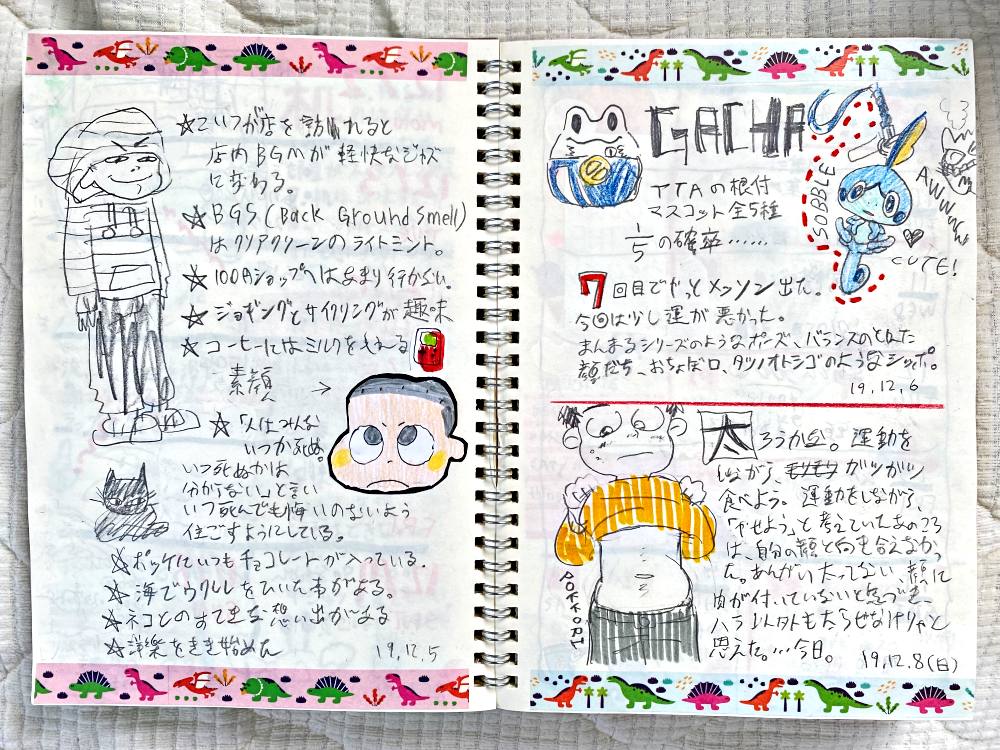 ☆こいつが店を訪れると
店内BGMが軽快なジャズ
に変わる。
☆BGS(Back Ground Smell)
はクリアクリーンのライトミント。
☆100円ショップへはあまり行かない。
☆ジョギングとサイクリングが趣味
☆コーヒーにはミルクを入れる
素顔→
☆「人はみんな
いつか死ぬ。
いつ死ぬかは
分からない」と言い
いつ死んでも悔いのないよう
過ごすようにしている。
☆ポッケにいつもチョコレートが入っている。
☆海でウクレレをひいた事がある。
☆ネコとのすてきな想い出がある
☆洋楽をきき始めた
19.12.5
GACHA
TTAの根付
マスコット全5種
1/5の確率……
SOBBLE
AWWWW
CUTE!
7回目でやっとメッソン出た。
今回は少し運が悪かった。
まんまるシリーズのようなポーズ、バランスのとれた
顔だち、おちょぼ口、タツノオトシゴのようなシッポ。
19.12.6
太ろうか🈁。運動を
しながら、モリモリガツガツ
食べよう。運動をしながら、
「やせよう」と考えていたあのころ
は、自分の顔と向き合えなかっ
た。あんがい太ってない、顔に
肉が付いていないと気づき、
ハラ以外も太らせなけりゃと
思えた。…今日。
19.12.8(日)
POKKORI